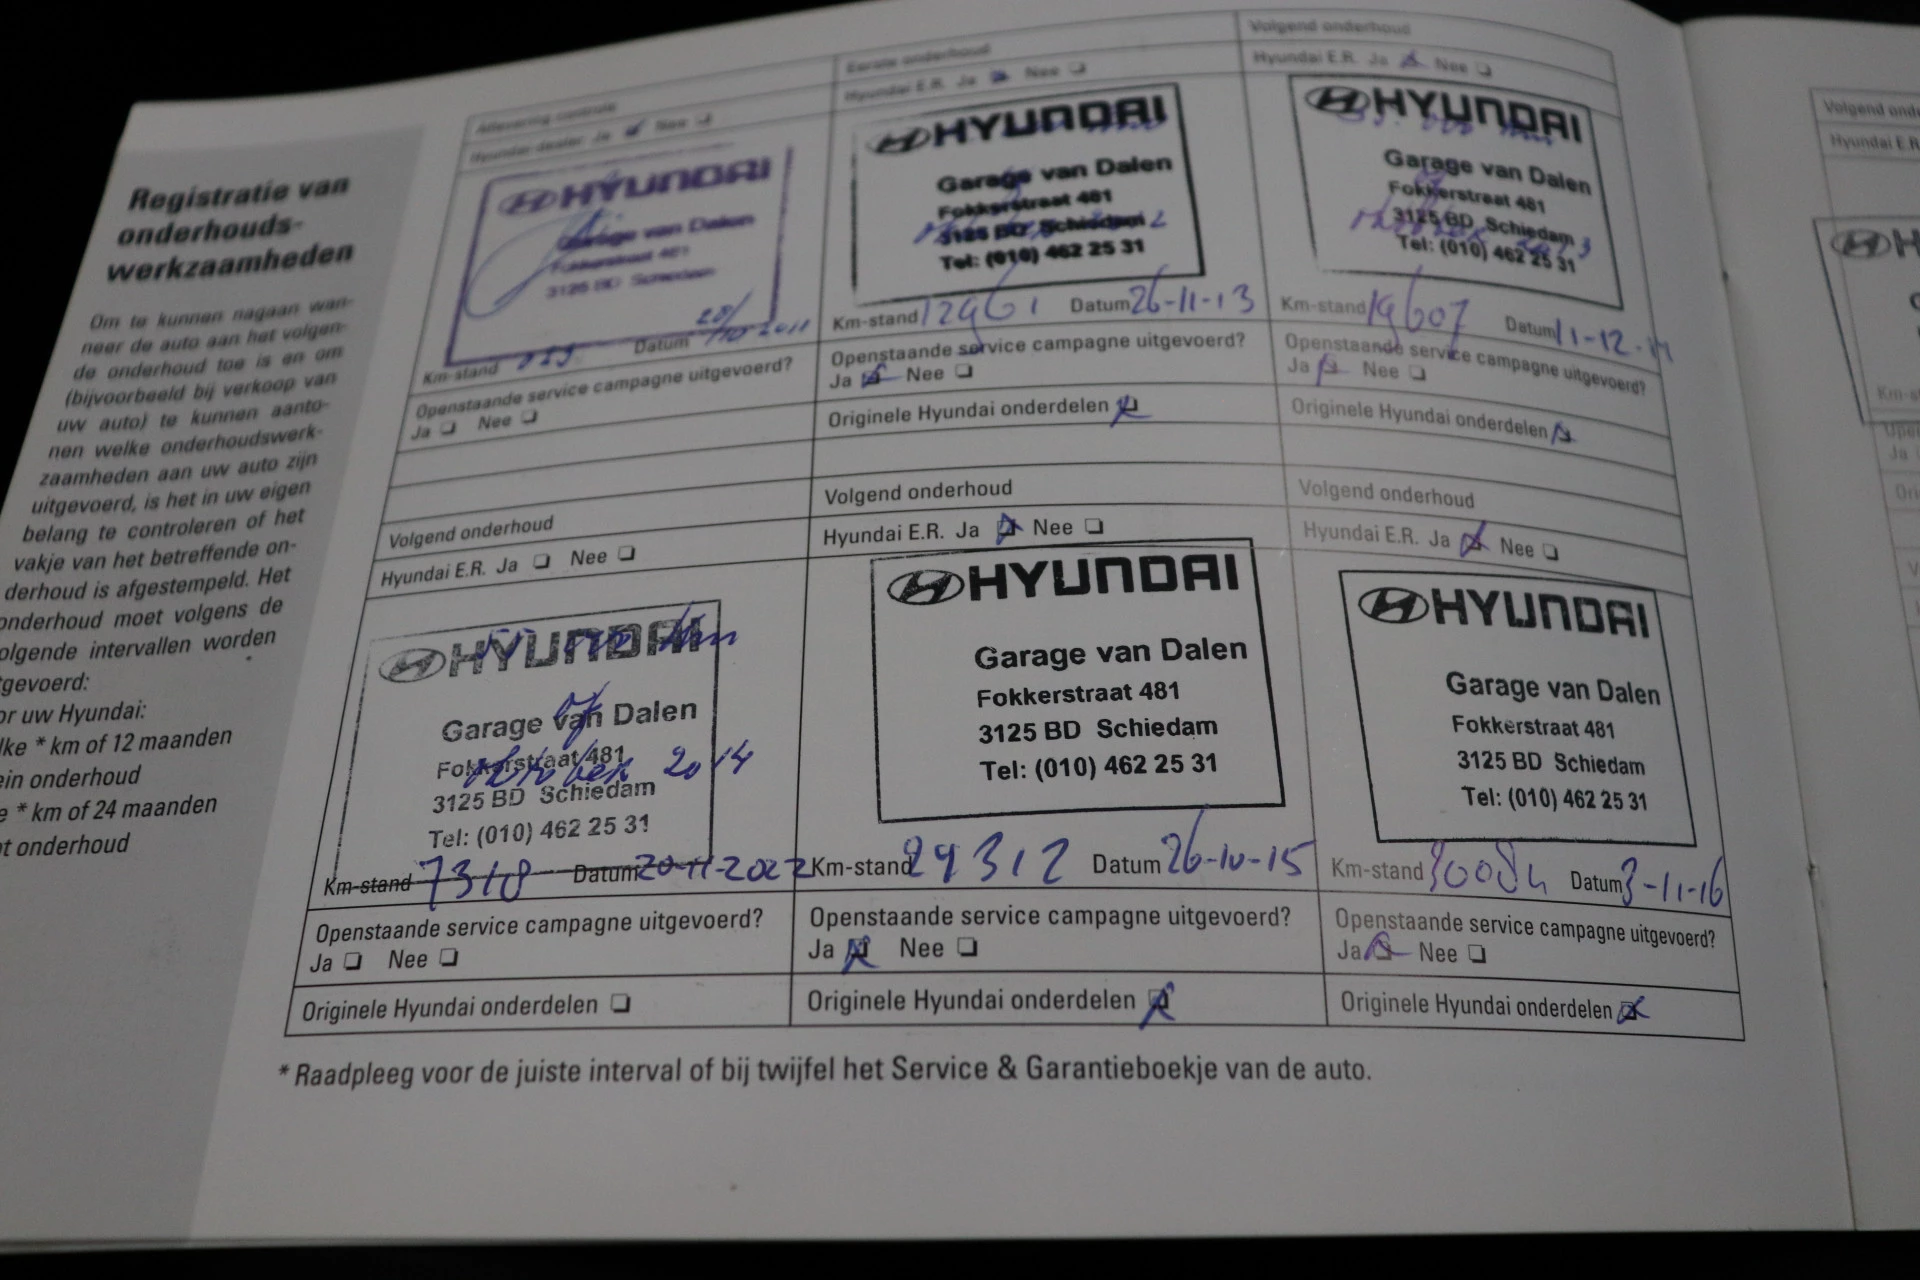 Registratie van
onderhouds-
werkzaamheden
Om te kunnen nagaan wan-
neer de auto aan het volgen-
de onderhoud toe is en om
(bijvoorbeeld bij verkoop van
uw auto) te kunnen aanto-
nen welke onderhoudswerk-
zaamheden aan uw auto zijn
uitgevoerd, is het in uw eigen
belang te controleren of het
vakje van het betreffende on-
derhoud is afgestempeld. Het
onderhoud moet volgens de
olgende intervallen worden
gevoerd:
or uw Hyundai:
lke * km of 12 maanden
ein onderhoud
e * km of 24 maanden
ot onderhoud
Aflevering controle
Hyundai-dealer Ja Nee
HYUNDAI
Garage van Dalen
Fokkerstraat 481
3125 BD Schiedam
Km-stand Datum 28/10 2011
Openstaande service campagne uitgevoerd?
Ja Nee
Eerste onderhoud
Hyundai E.R. Ja Nee
HYUNDAI
Garage van Dalen
Fokkerstraat 481
3125 BD Schiedam
Tel: (010) 462 25 31
Km-stand 12961 Datum 26-11-13
Openstaande service campagne uitgevoerd?
Ja Nee
Originele Hyundai onderdelen
Volgend onderhoud
Hyundai E.R. Ja Nee
HYUNDAI
Garage van Dalen
Fokkerstraat 481
3125 BD Schiedam
Tel: (010) 462 25 31
Km-stand 19607 Datum 11-12-14
Openstaande service campagne uitgevoerd?
Ja Nee
Originele Hyundai onderdelen
Volgend onderhoud
Hyundai E.R. Ja Nee
HYUNDAI km
of
Garage van Dalen
Fokkerstraat 481
oktober 2014
3125 BD Schiedam
Tel: (010) 462 25 31
Km-stand 7318 Datum 20-11-2022
Openstaande service campagne uitgevoerd?
Ja Nee
Originele Hyundai onderdelen
Volgend onderhoud
Hyundai E.R. Ja Nee
HYUNDAI
Garage van Dalen
Fokkerstraat 481
3125 BD Schiedam
Tel: (010) 462 25 31
Km-stand 24312 Datum 26-10-15
Openstaande service campagne uitgevoerd?
Ja Nee
Originele Hyundai onderdelen
Volgend onderhoud
Hyundai E.R. Ja Nee
HYUNDAI
Garage van Dalen
Fokkerstraat 481
3125 BD Schiedam
Tel: (010) 462 25 31
Km-stand 30084 Datum 3-11-16
Openstaande service campagne uitgevoerd?
Ja Nee
Originele Hyundai onderdelen
* Raadpleeg voor de juiste interval of bij twijfel het Service & Garantieboekje van de auto.
Volgend onde
Hyundai E.R.